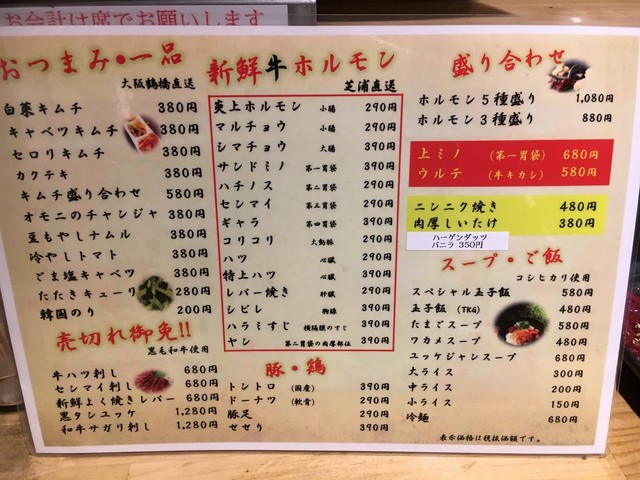 お会計は席でお願いします
おつまみ・一品
大阪鶴橋直送
白菜キムチ 380円
キャベツキムチ 380円
セロリキムチ 380円
カクテキ 380円
キムチ盛り合わせ 580円
オモニのチャンジャ 380円
豆もやしナムル 380円
冷やしトマト 380円
ごま塩キャベツ 380円
たたきキューリ 280円
韓国のり 200円
売切れ御免!!
黒毛和牛使用
牛ハツ刺し 680円
センマイ刺し 680円
新鮮よく焼きレバー 680円
黒タンユッケ 1,280円
和牛サガリ刺し 1,280円
新鮮牛ホルモン
芝浦直送
炎上ホルモン 小腸 290円
マルチョウ 小腸 290円
シマチョウ 大腸 390円
サンドミノ 第一胃袋 390円
ハチノス 第二胃袋 290円
センマイ 第三胃袋 390円
ギャラ 第四胃袋 390円
コリコリ 大動脈 290円
ハツ 心臓 290円
特上ハツ 心臓 390円
レバー焼き 肝臓 290円
シビレ 胸腺 390円
ハラミすじ 横隔膜のすじ 390円
ヤン 第二胃袋の肉厚部位 390円
豚・鶏
トントロ (国産) 390円
ドーナツ (軟骨) 390円
豚足 290円
せせり 390円
盛り合わせ
ホルモン5種盛り 1,080円
ホルモン3種盛り 880円
上ミノ (第一胃袋) 680円
ウルテ (牛キカン) 580円
ニンニク焼き 480円
肉厚しいたけ 380円
ハーゲンダッツ
バニラ 350円
スープ・ご飯
コシヒカリ使用
スペシャル玉子飯 580円
玉子飯 (TKG) 480円
たまごスープ 480円
ワカメスープ 480円
ユッケジャンスープ 680円
大ライス 300円
中ライス 200円
小ライス 150円
冷麺 680円
表示価格は税抜価額です。